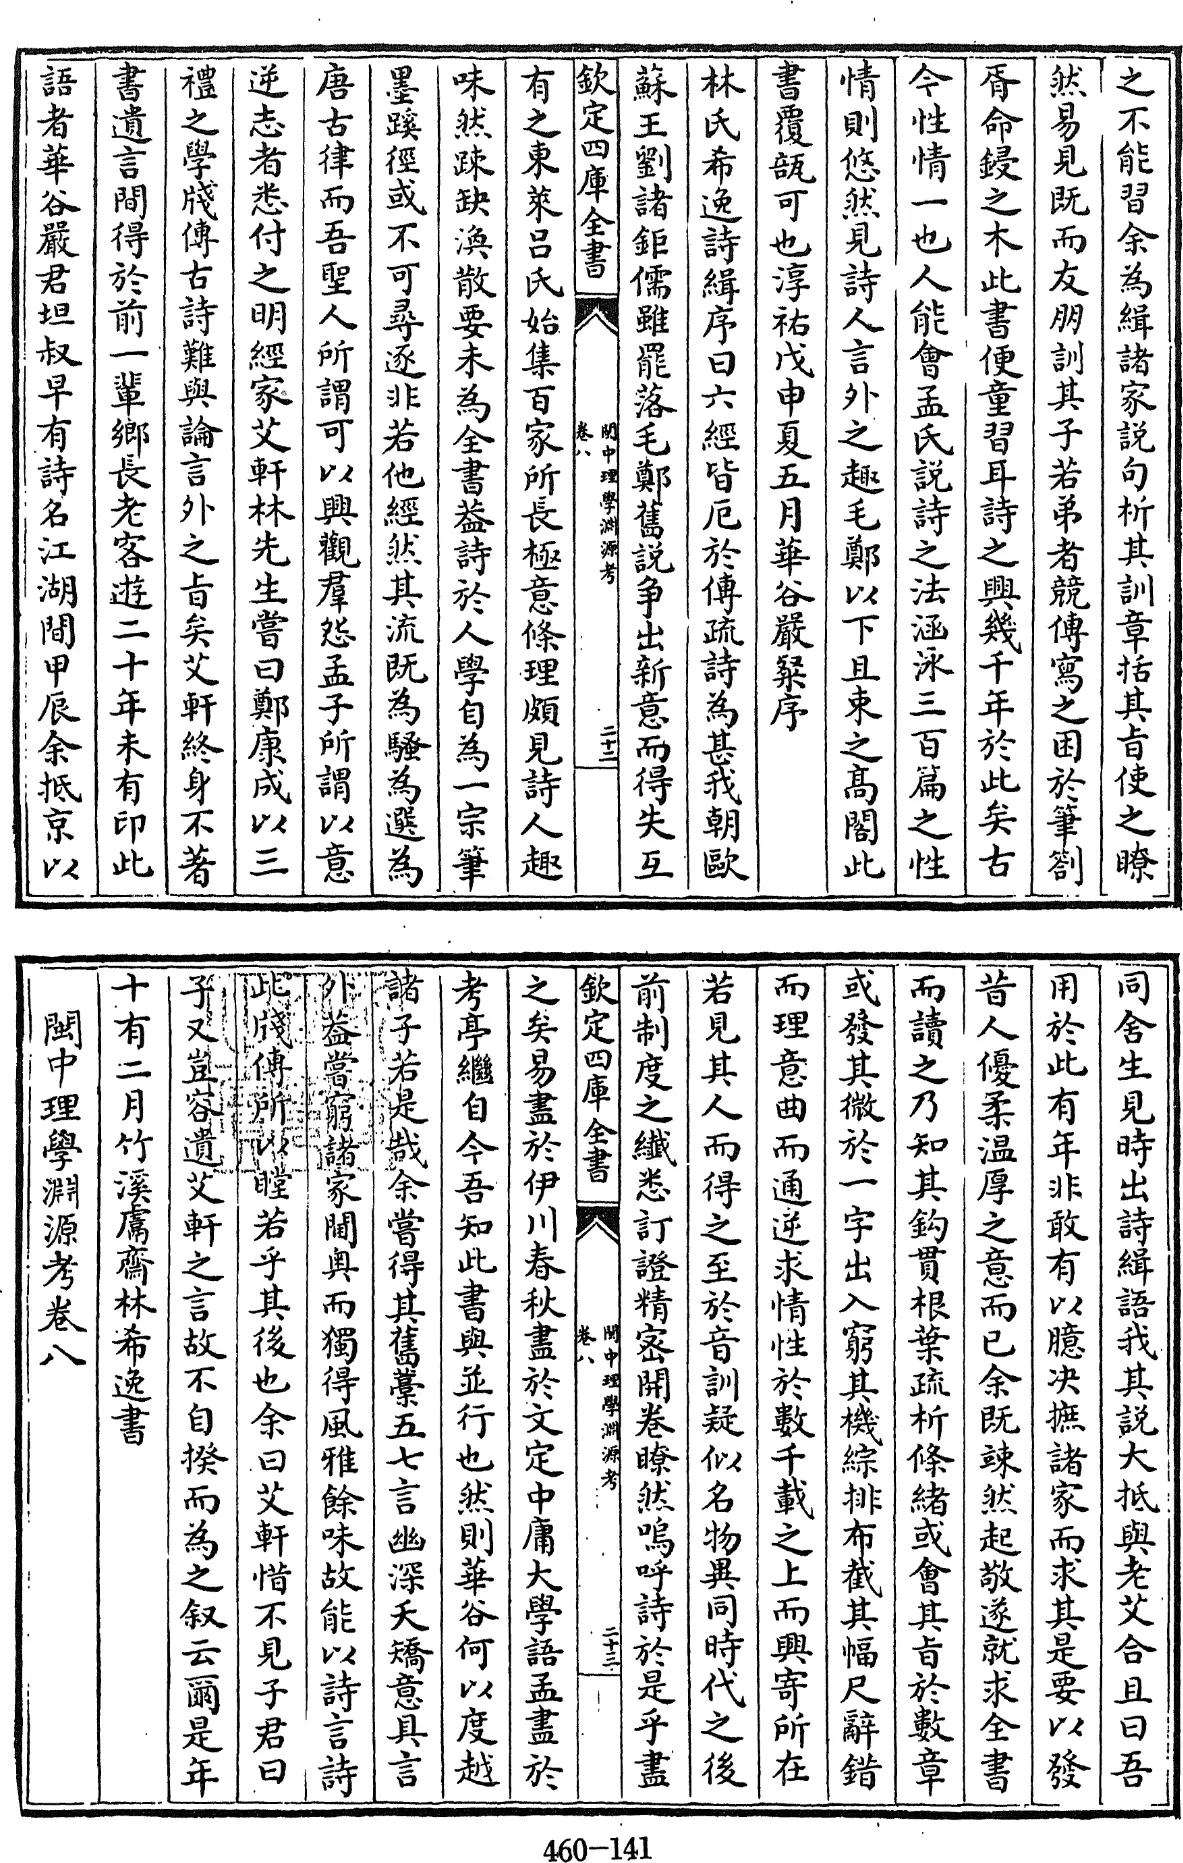 之不能習余為緝諸家説句析其訓章括其㫖使之瞭
然易見既而友朋訓其子若弟者競傳寫之困於筆劄
胥命鋟之木此書便童習耳詩之興幾千年於此矣古
今性情一也人能會孟氏説詩之法涵泳三百篇之性
情則悠然見詩人言外之趣毛鄭以下且束之髙閣此
書覆瓿可也淳祐戊申夏五月華谷嚴粲序
林氏希逸詩緝序曰六經皆厄於傳疏詩為甚我朝歐
蘇王劉諸鉅儒雖罷落毛鄭舊説争出新意而得失互
欽定四庫全書
閩中理學淵源考
卷八
二十二
有之東萊吕氏始集百家所長極意條理頗見詩人趣
味然踈缺渙散要未為全書葢詩於人學自為一宗筆
墨蹊徑或不可尋逐非若他經然其流既為騷為選為
唐古律而吾聖人所謂可以興觀羣怨孟子所謂以意
逆志者悉付之明經家艾軒林先生嘗曰鄭康成以三
禮之學牋傳古詩難與論言外之㫖矣艾軒終身不著
書遺言間得於前一輩鄉長老客遊二十年未有印此
語者華谷嚴君坦叔早有詩名江湖間甲辰余抵京以
同舍生見時出詩緝語我其説大抵與老艾合且曰吾
用於此有年非敢有以臆决摭諸家而求其是要以發
昔人優柔温厚之意而已余既竦然起敬遂就求全書
而讀之乃知其鈎貫根葉疏析條緒或會其㫖於數章
或發其微於一字出入窮其機綜排布截其幅尺辭錯
而理意曲而通逆求情性於數千載之上而興寄所在
若見其人而得之至於音訓疑似名物異同時代之後
前制度之纎悉訂證精宻開卷瞭然嗚呼詩於是乎盡
欽定四庫全書
閩中理學淵源考
卷八
二十三
之矣易盡於伊川春秋盡於文定中庸大學語孟盡於
考亭繼自今吾知此書與並行也然則華谷何以度越
諸子若是哉余嘗得其舊藳五七言幽深夭矯意具言
外葢嘗窮諸家閫奥而獨得風雅餘味故能以詩言詩
此牋傳所以瞠若乎其後也余曰艾軒惜不見子君曰
子又豈容遺艾軒之言故不自揆而為之叙云爾是年
十有二月竹溪鬳齋林希逸書
閩中理學淵源考卷八
460-141